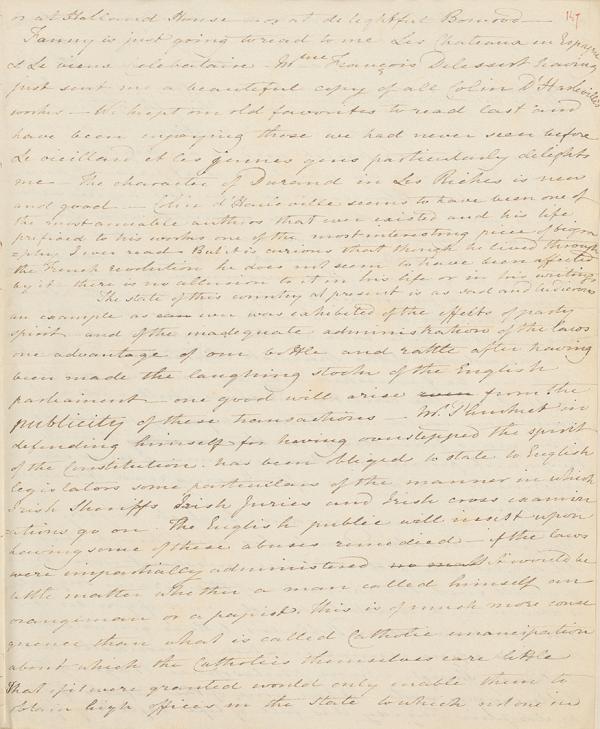 or at Holland House – or at delightful Bowood –
147
Fanny is just going to read to me Les Chateaux en Espagne
& Le vieux Celebataire. M.me François Delessert having
just sent me a beautiful copy of all Colin D'Harleville's
works – We kept our old favorites to read last and
have been enjoying those we had never seen before
Le vieillard et les jeunes gens particularly delights
me – The character of Durand in Les Riches is new
and good – Colin d'Harleville seems to have been one of
the most amiable authors that ever existed and his life
prefixed to his works one of the most interesting pieces of biogra
=phy I ever read – But it is curious that though he lived through
the French revolution he does not seem to have been affected
by it there is no allusion to it in his life or in his writings
The state of this country at present is as sad and ludicrous
an example as ever was exhibited of the effects of party
spirit and of the inadequate administration of the laws
one advantage of our bottle and rattle after having
been made the laughing stock of the English
parliament – one good will arise even from the
publicity of these transactions – Mr. Plunket in
defending himself for having overstepped the spirit
of the Constitution has been obliged to state to English
legislators some particulars of the manner in which
Irish Sheriffs Irish Juries and Irish cross examin
ations go on. The English public will insist upon
having some of these abuses remedied – if the laws
were impartially administered it would be
little matter whether a man called himself an
orangeman or a papist. This is of much more conse
quence than what is called Catholic emancipation
about which the Catholics themselves care little
That if it were granted would only enable them to
obtain high offices in the State to which not one in